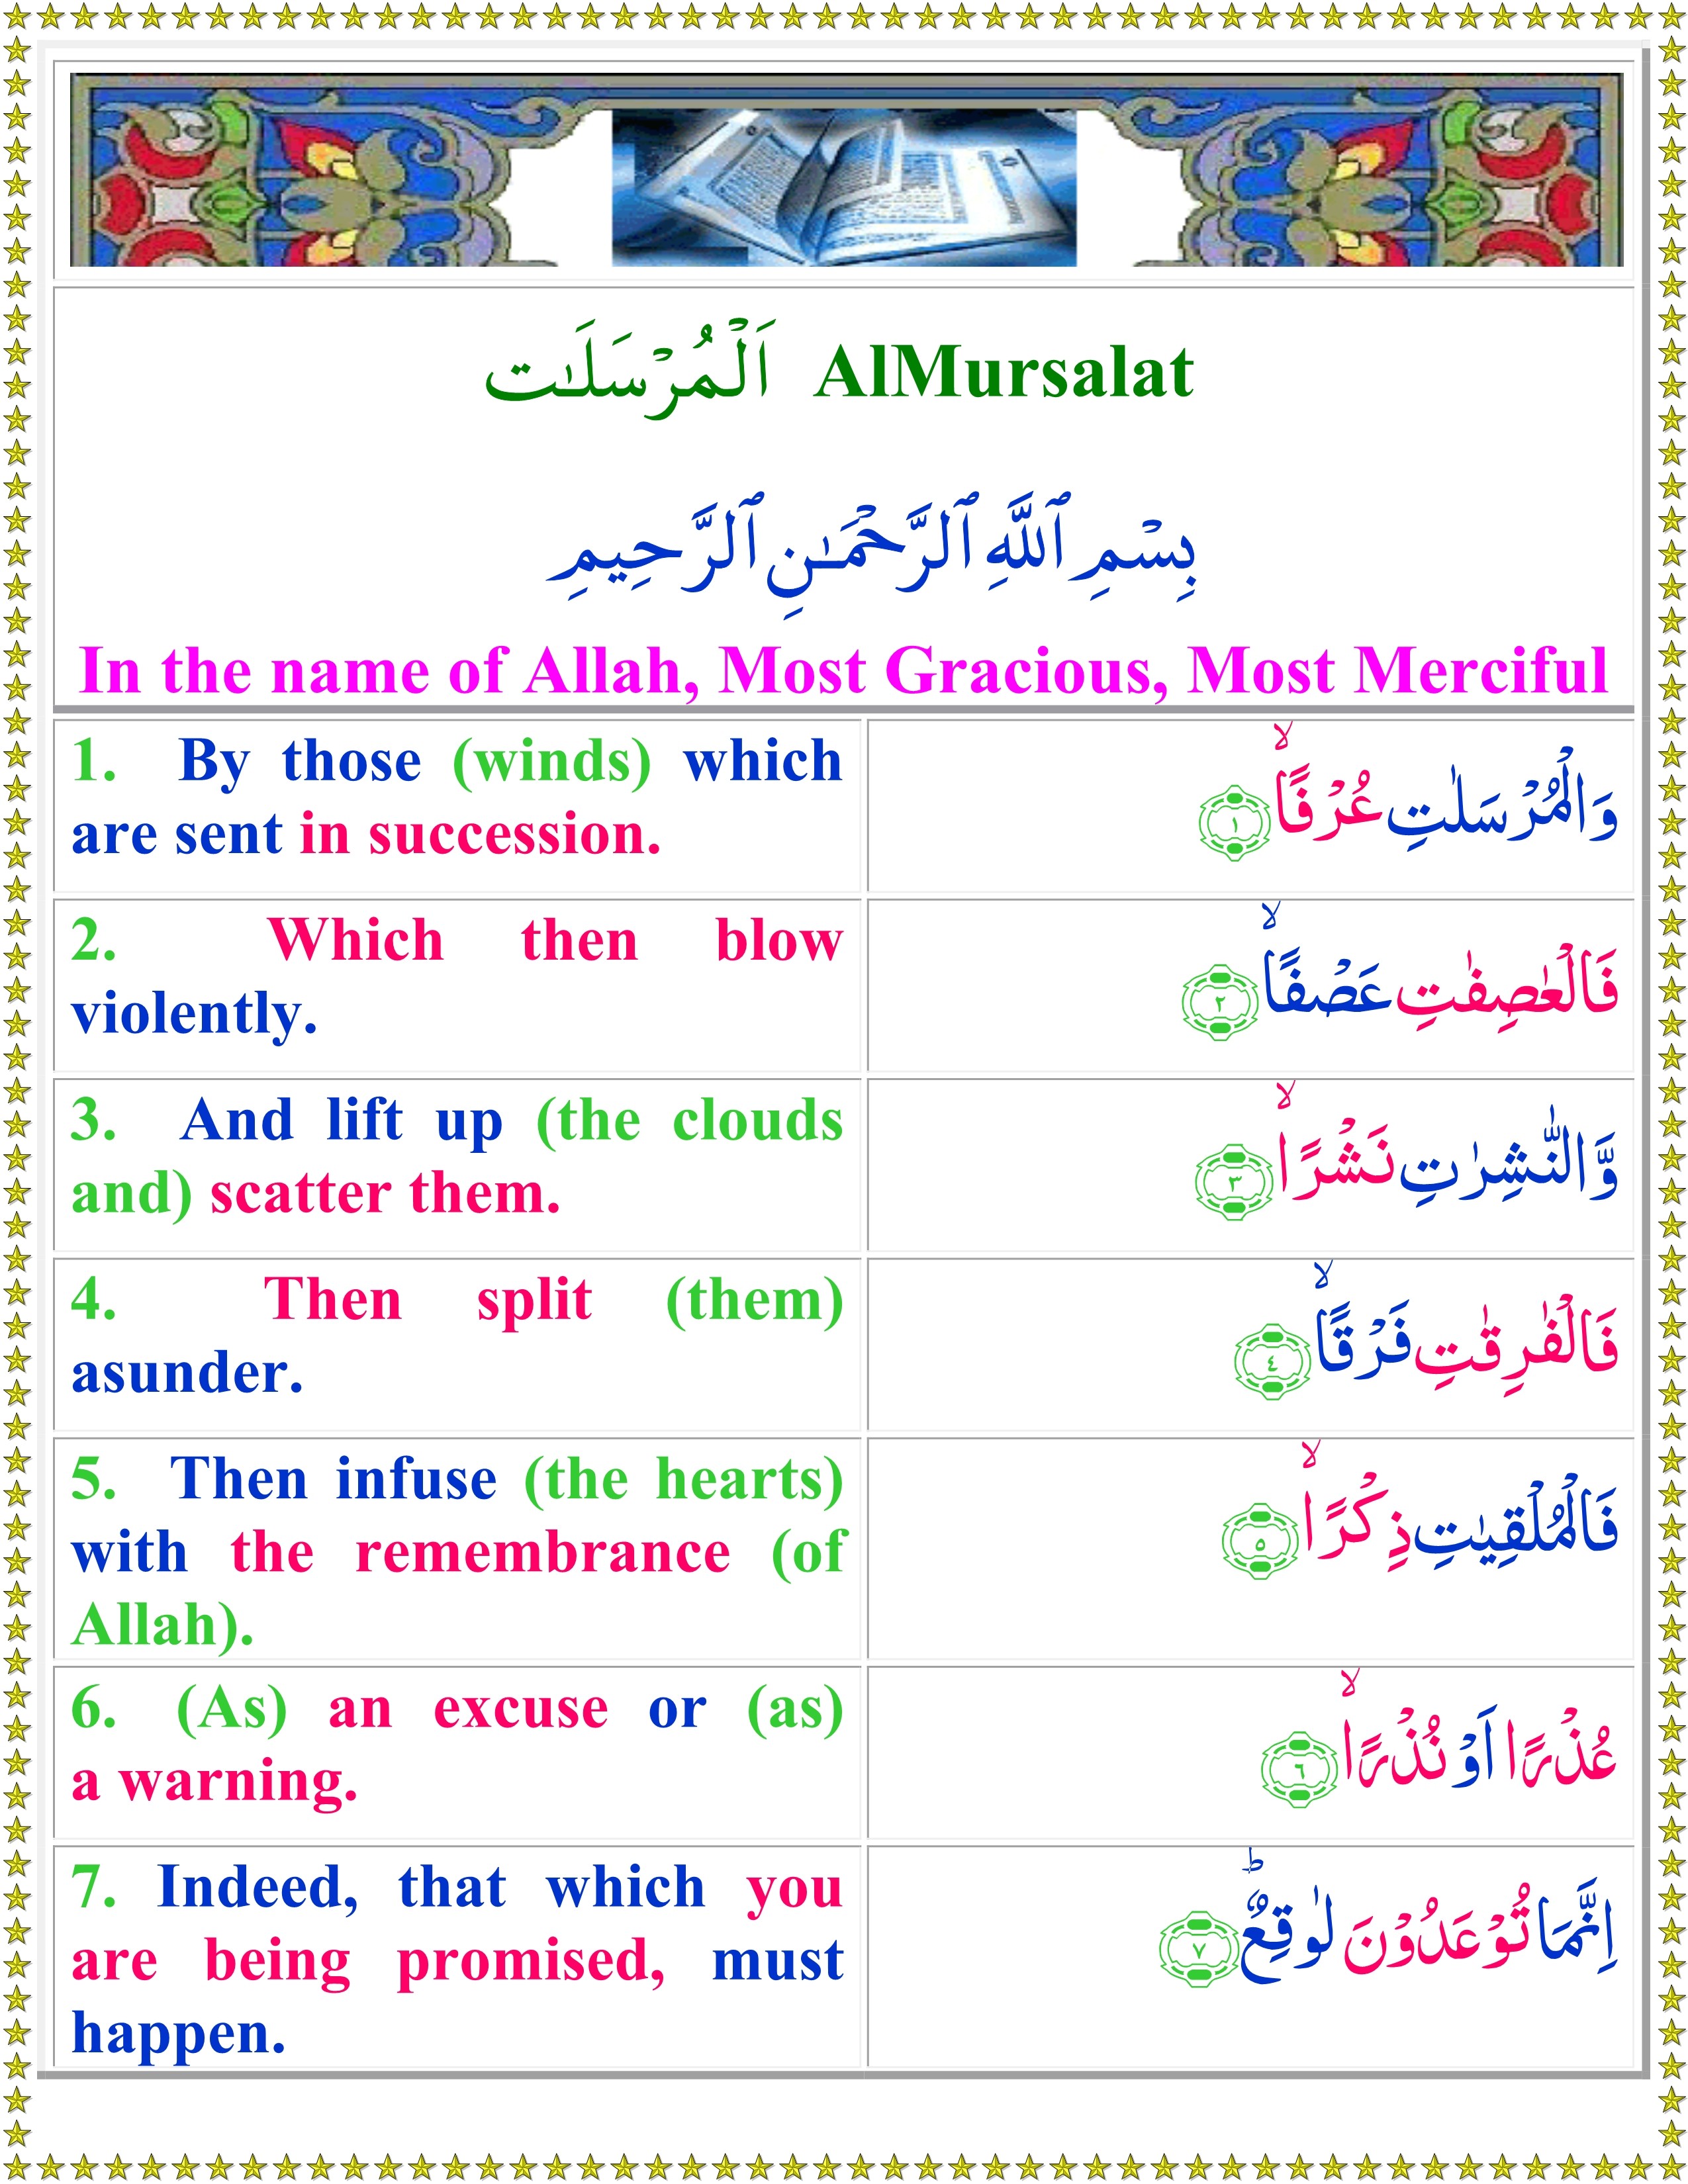 اَلۡمُرۡسَلَـٰت AlMursalat
بِسۡمِ ٱللَّهِ ٱلرَّحۡمَـٰنِ ٱلرَّحِيمِ
In the name of Allah, Most Gracious, Most Merciful
1. By those (winds) which
are sent in succession.
وَالۡمُرۡسَلٰتِ عُرۡفًاۙ ﴿۱﴾
2. Which then blow
violently.
فَالۡعٰصِفٰتِ عَصۡفًاۙ ﴿۲﴾
3. And lift up (the clouds
and) scatter them.
وَّالنّٰشِرٰتِ نَشۡرًاۙ ﴿۳﴾
4. Then split (them)
asunder.
فَالۡفٰرِقٰتِ فَرۡقًاۙ ﴿٤﴾
5. Then infuse (the hearts)
with the remembrance (of
Allah).
فَالۡمُلۡقِيٰتِ ذِكۡرًاۙ ﴿٥﴾
6. (As) an excuse or (as)
a warning.
عُذۡرًا اَوۡ نُذۡرًاۙ ﴿٦﴾
7. Indeed, that which you
are being promised, must
happen.
اِنَّمَا تُوۡعَدُوۡنَ لَوٰقِعٌؕ ﴿۷﴾